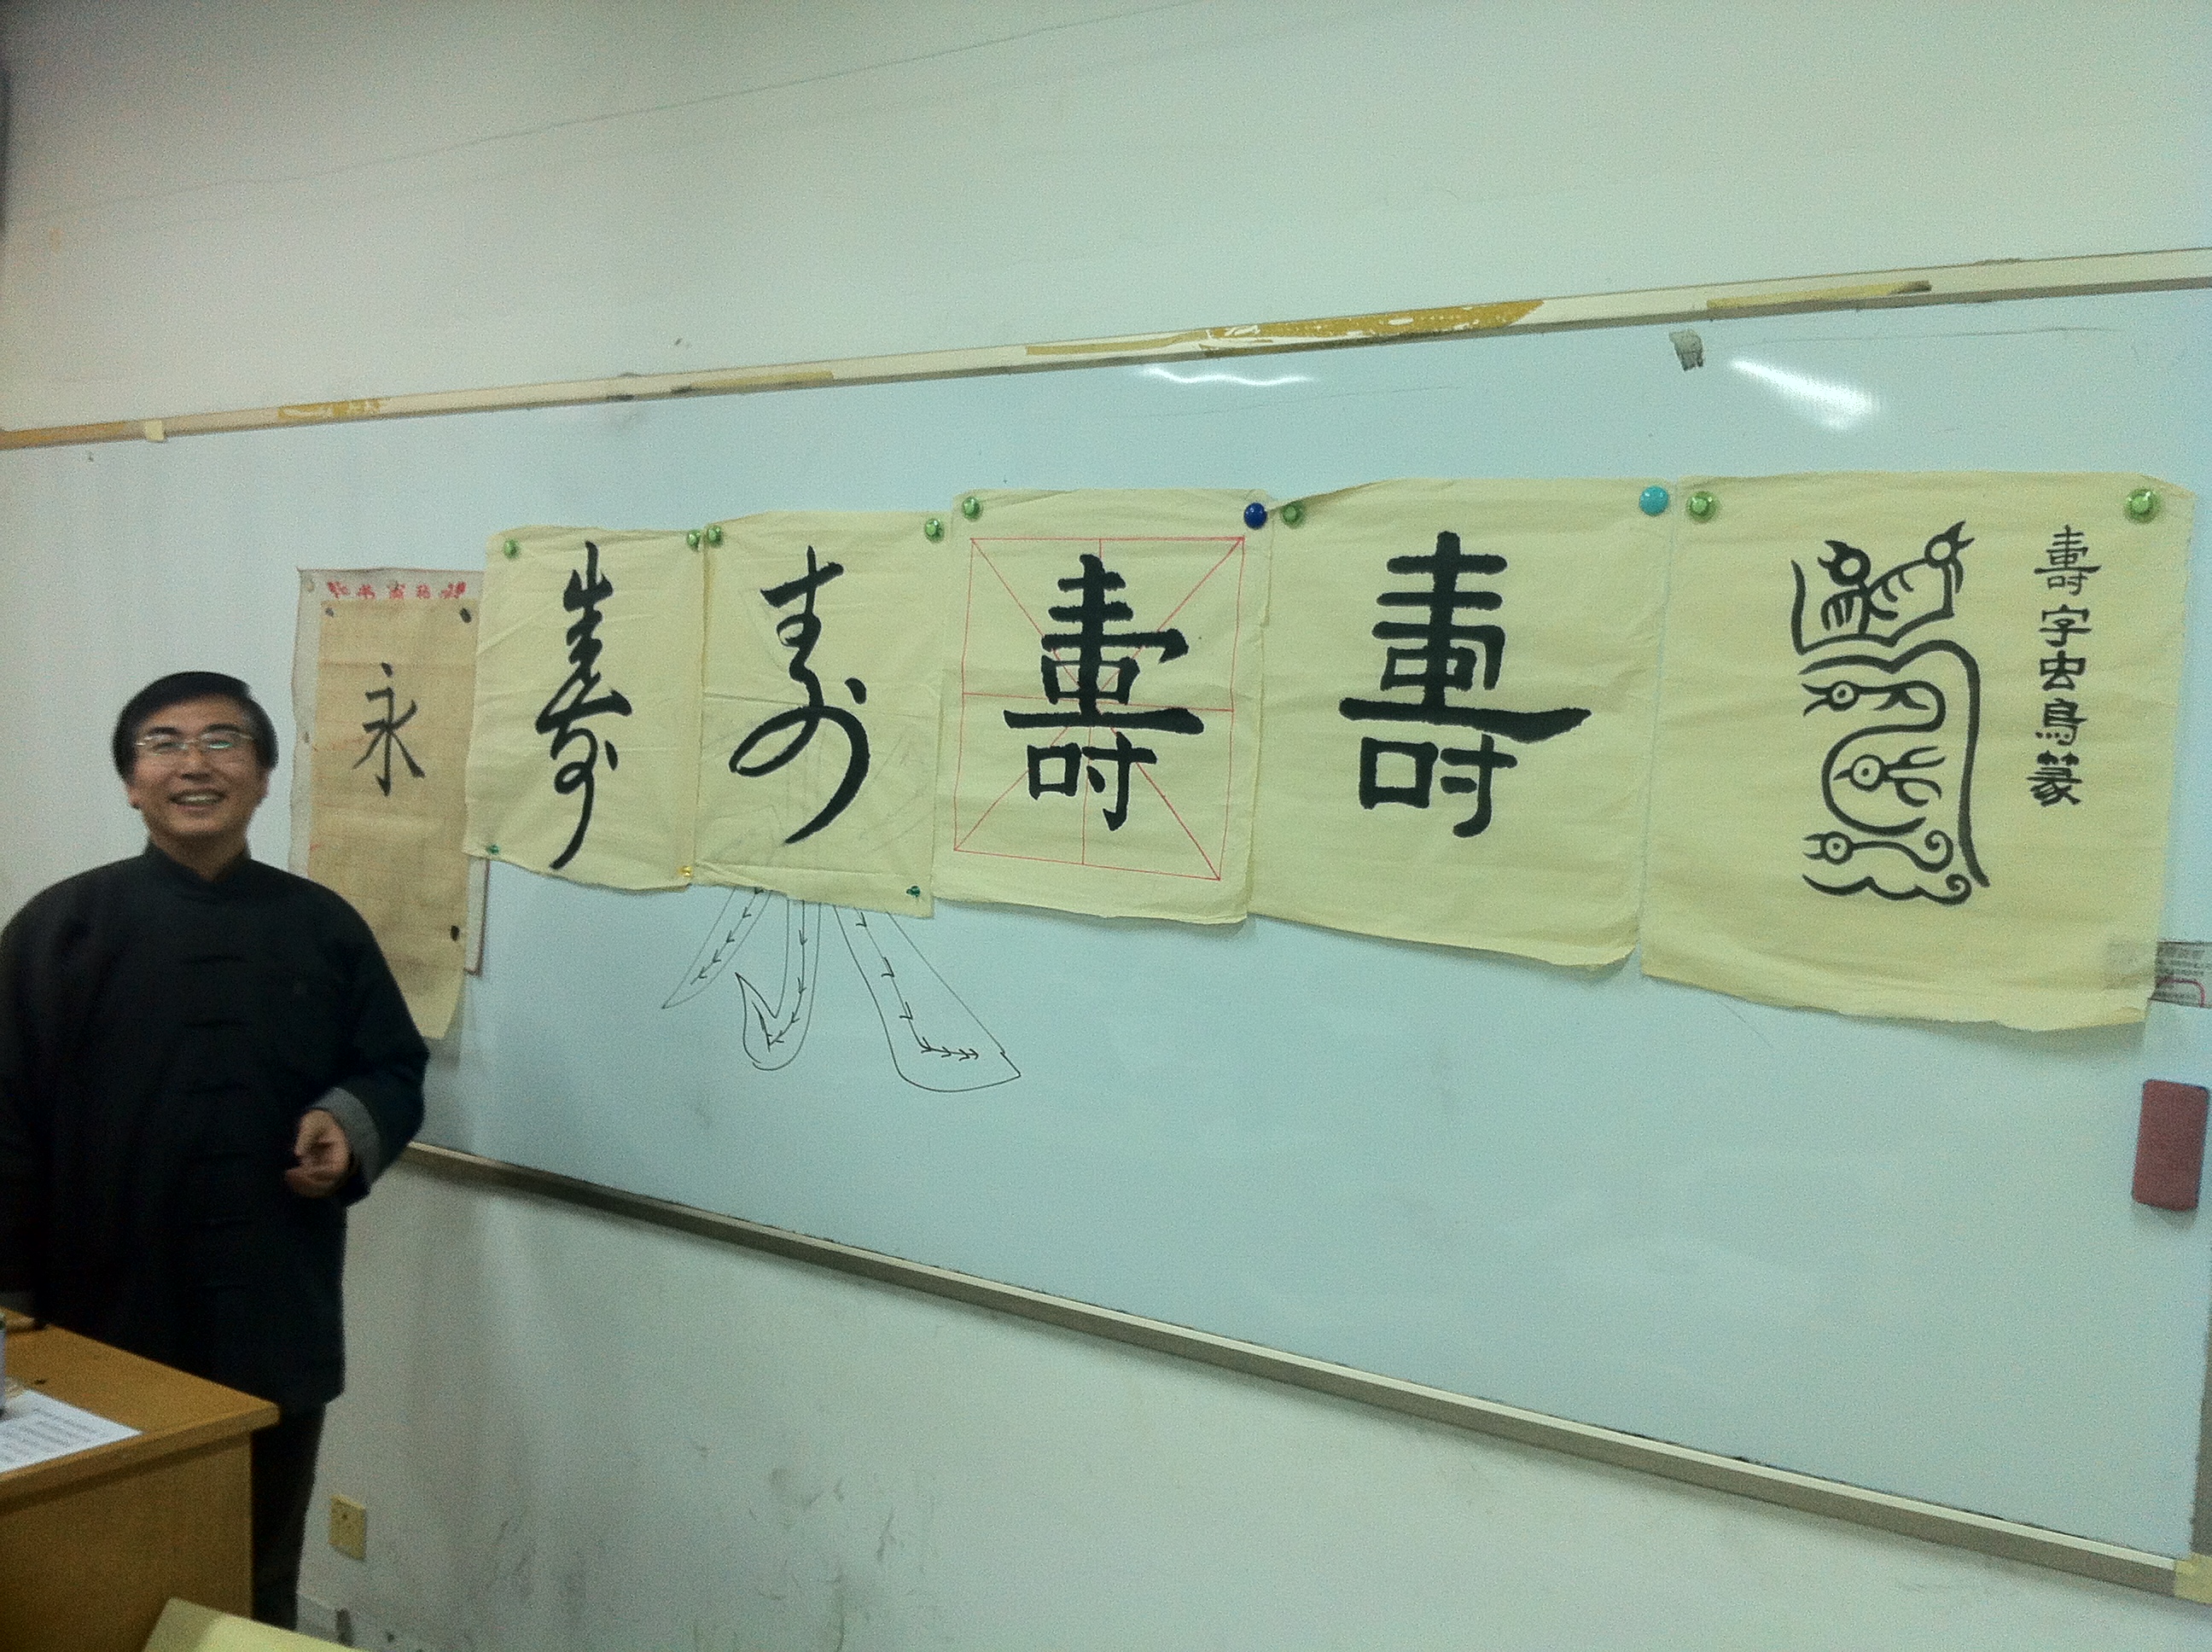 永
壽
寿
壽
壽
壽
壽字虫鳥篆